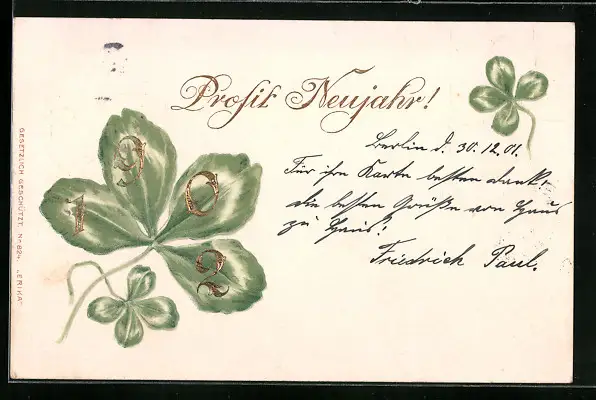 Prosit Neujahr!
Berlin d. 30.12.01.
Für ihre Karte besten dank,
die besten Grüße von Haus
zu Haus!
Friedrich Paul.
1 9 0 2
GESETZLICH GESCHÜTZT. No 824. "ERIKA"